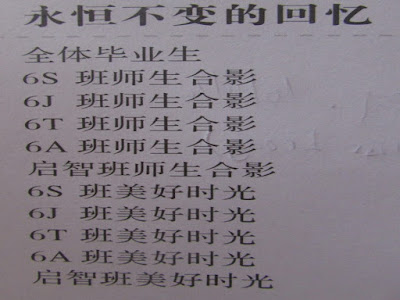 永恒不变的回忆
全体毕业生
6S 班师生合影
6J 班师生合影
6T 班师生合影
6A 班师生合影
启智班师生合影
6S 班美好时光
6J 班美好时光
6T 班美好时光
6A 班美好时光
启智班美好时光